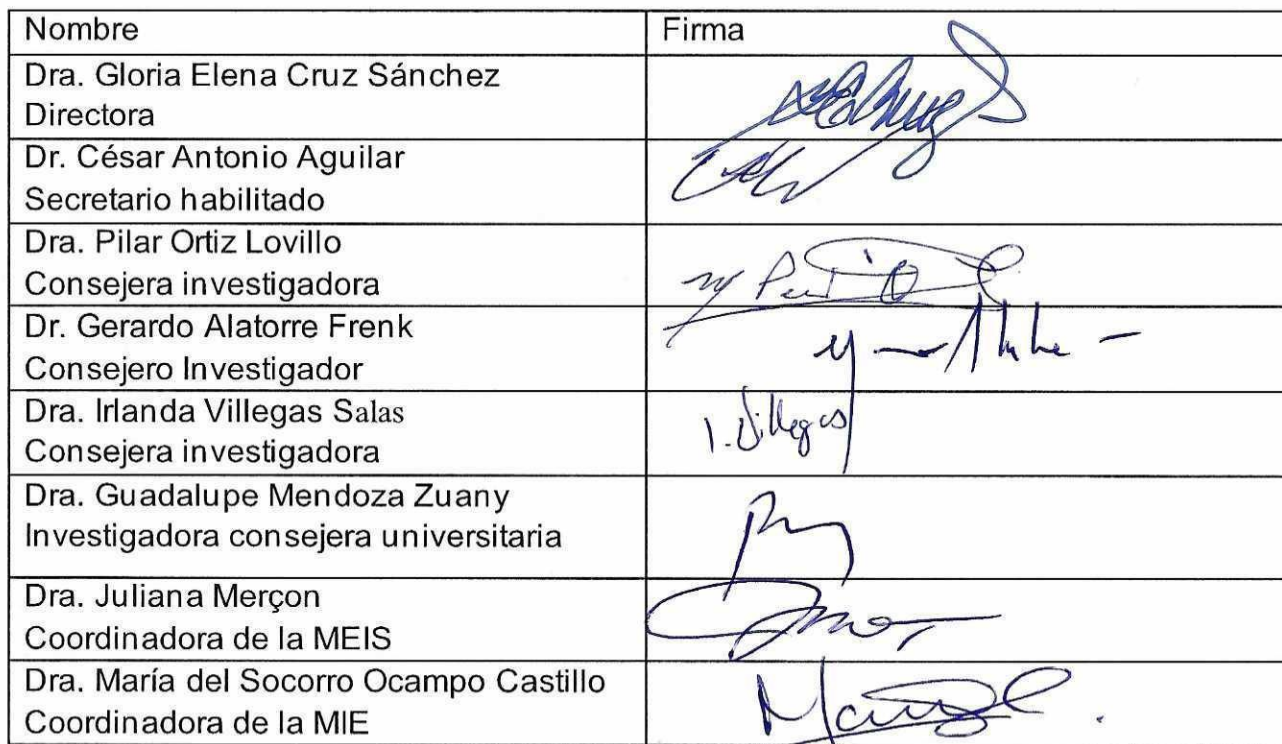 Nombre
Firma
Dra. Gloria Elena Cruz Sánchez
Directora
Dr. César Antonio Aguilar
Secretario habilitado
Dra. Pilar Ortiz Lovillo
Consejera investigadora
Dr. Gerardo Alatorre Frenk
Consejero Investigador
Dra. Irlanda Villegas Salas
Consejera investigadora
I. Villegas
Dra. Guadalupe Mendoza Zuany
Investigadora consejera universitaria
Dra. Juliana Merçon
Coordinadora de la MEIS
Dra. María del Socorro Ocampo Castillo
Coordinadora de la MIE